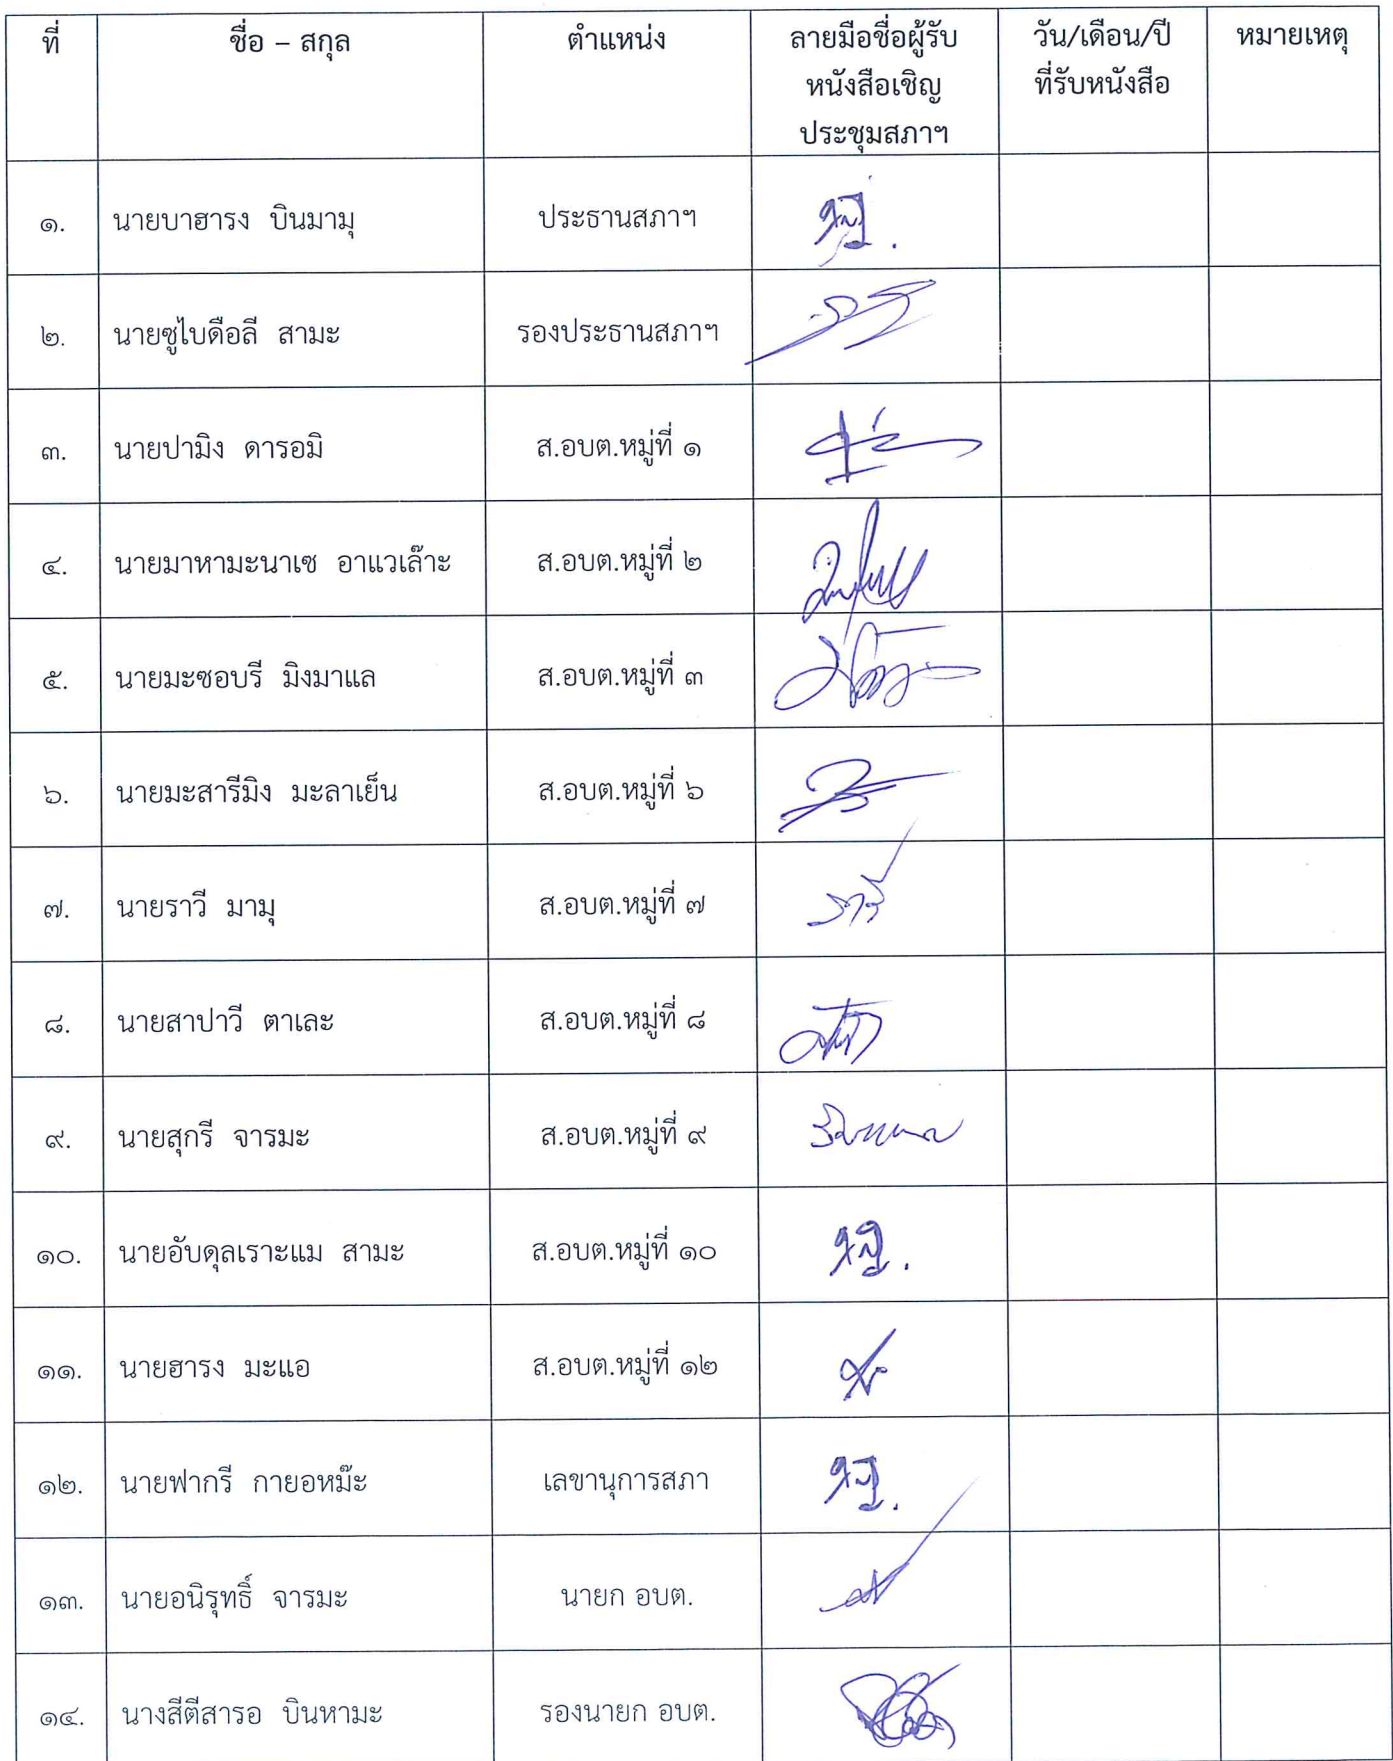 ที่ ชื่อ – สกุล ตำแหน่ง ลายมือชื่อผู้รับ วัน/เดือน/ปี หมายเหตุ
หนังสือเชิญ ที่รับหนังสือ
ประชุมสภาฯ
๑. นายบาฮารง บินมามุ ประธานสภาฯ
๒. นายซูไบดือลี สามะ รองประธานสภาฯ
๓. นายปามิง ดารอมิ ส.อบต.หมู่ที่ ๑
๔. นายมาหามะนาเซ อาแวเล๊าะ ส.อบต.หมู่ที่ ๒
๕. นายมะซอบรี มิงมาแล ส.อบต.หมู่ที่ ๓
๖. นายมะสารีมิง มะลาเย็น ส.อบต.หมู่ที่ ๖
๗. นายราวี มามุ ส.อบต.หมู่ที่ ๗
๘. นายสาปาวี ตาเละ ส.อบต.หมู่ที่ ๘
๙. นายสุกรี จารมะ ส.อบต.หมู่ที่ ๙
๑๐. นายอับดุลเราะแม สามะ ส.อบต.หมู่ที่ ๑๐
๑๑. นายฮารง มะแอ ส.อบต.หมู่ที่ ๑๒
๑๒. นายฟากรี กายอหม๊ะ เลขานุการสภา
๑๓. นายอนิรุทธิ์ จารมะ นายก อบต.
๑๔. นางสีตีสารอ บินหามะ รองนายก อบต.